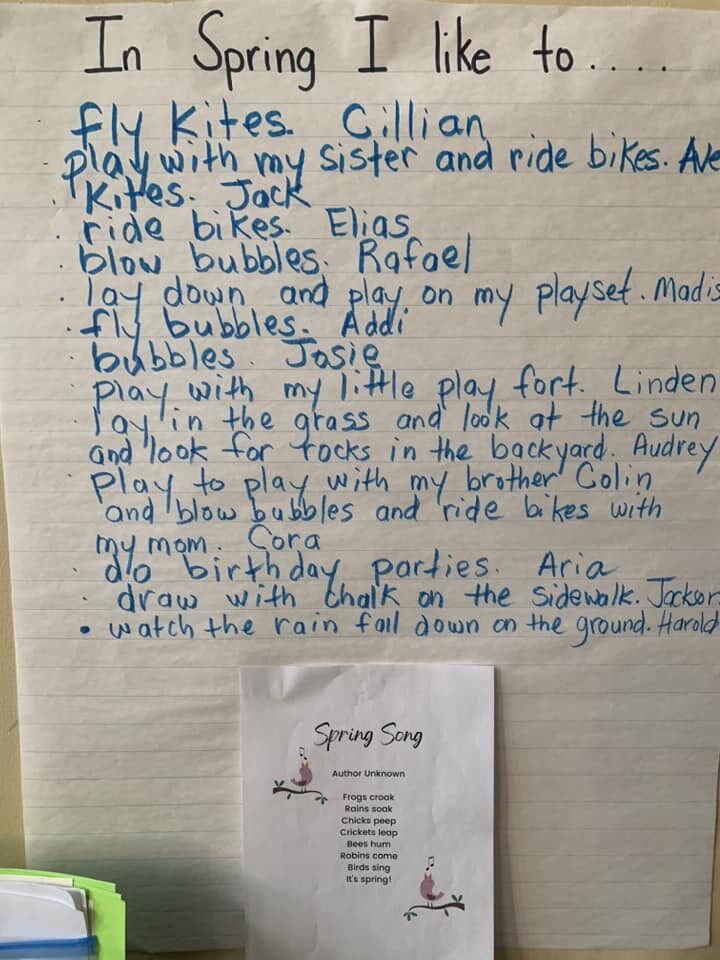 In Spring I like to.....
· fly kites. Cillian
- play with my sister and ride bikes. Ave
· Kites. Jack
· ride bikes. Elias
· blow bubbles. Rafael
· lay down and play on my playset. Madis
· fly bubbles. Addi
· bubbles. Josie
· play with my little play fort. Linden
· lay in the grass and look at the sun
and look for rocks in the backyard. Audrey
· Play to play with my brother Colin
and blow bubbles and ride bikes with
my mom. Cora
· do birthday parties. Aria
· draw with chalk on the sidewalk. Jackson
• watch the rain fall down on the ground. Harold
Spring Song
Author Unknown
Frogs croak
Rains soak
Chicks peep
Crickets leap
Bees hum
Robins come
Birds sing
It's spring!